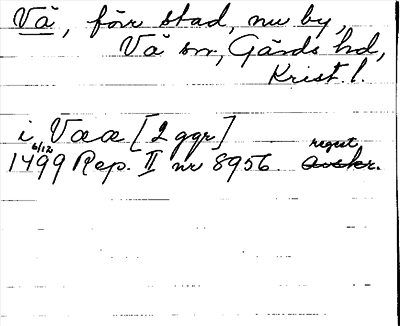 Vä, förr stad, nu by,
Vä sn, Gärds hd,
Krist. l.
i Vææ [2 ggr]
6/12 regest
1499 Rep. II nr 8956. avskr.